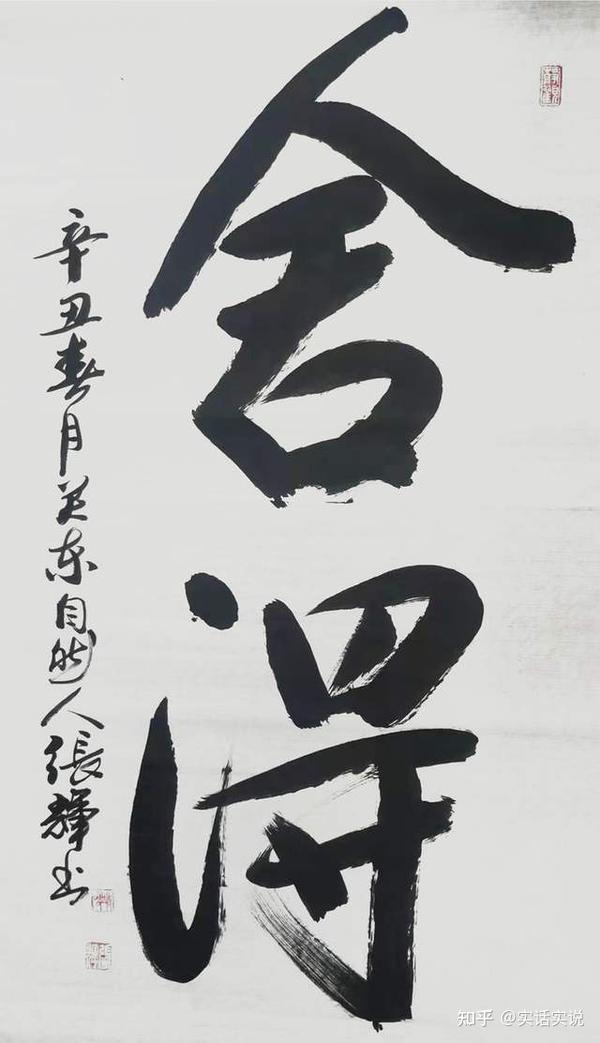 舍得
辛丑春月关东自然人張輝书
知乎 @实话实说